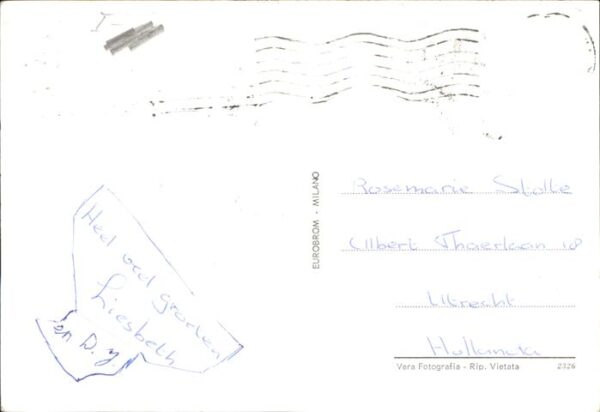 I-
Heel veel groeten
Liesbeth
en D.J.
EUROBROM - MILANO
Rosemarie Stolle
Albert Thaerlaan 18
Utrecht
Vera Fotografia - Rip. Vietata 2326